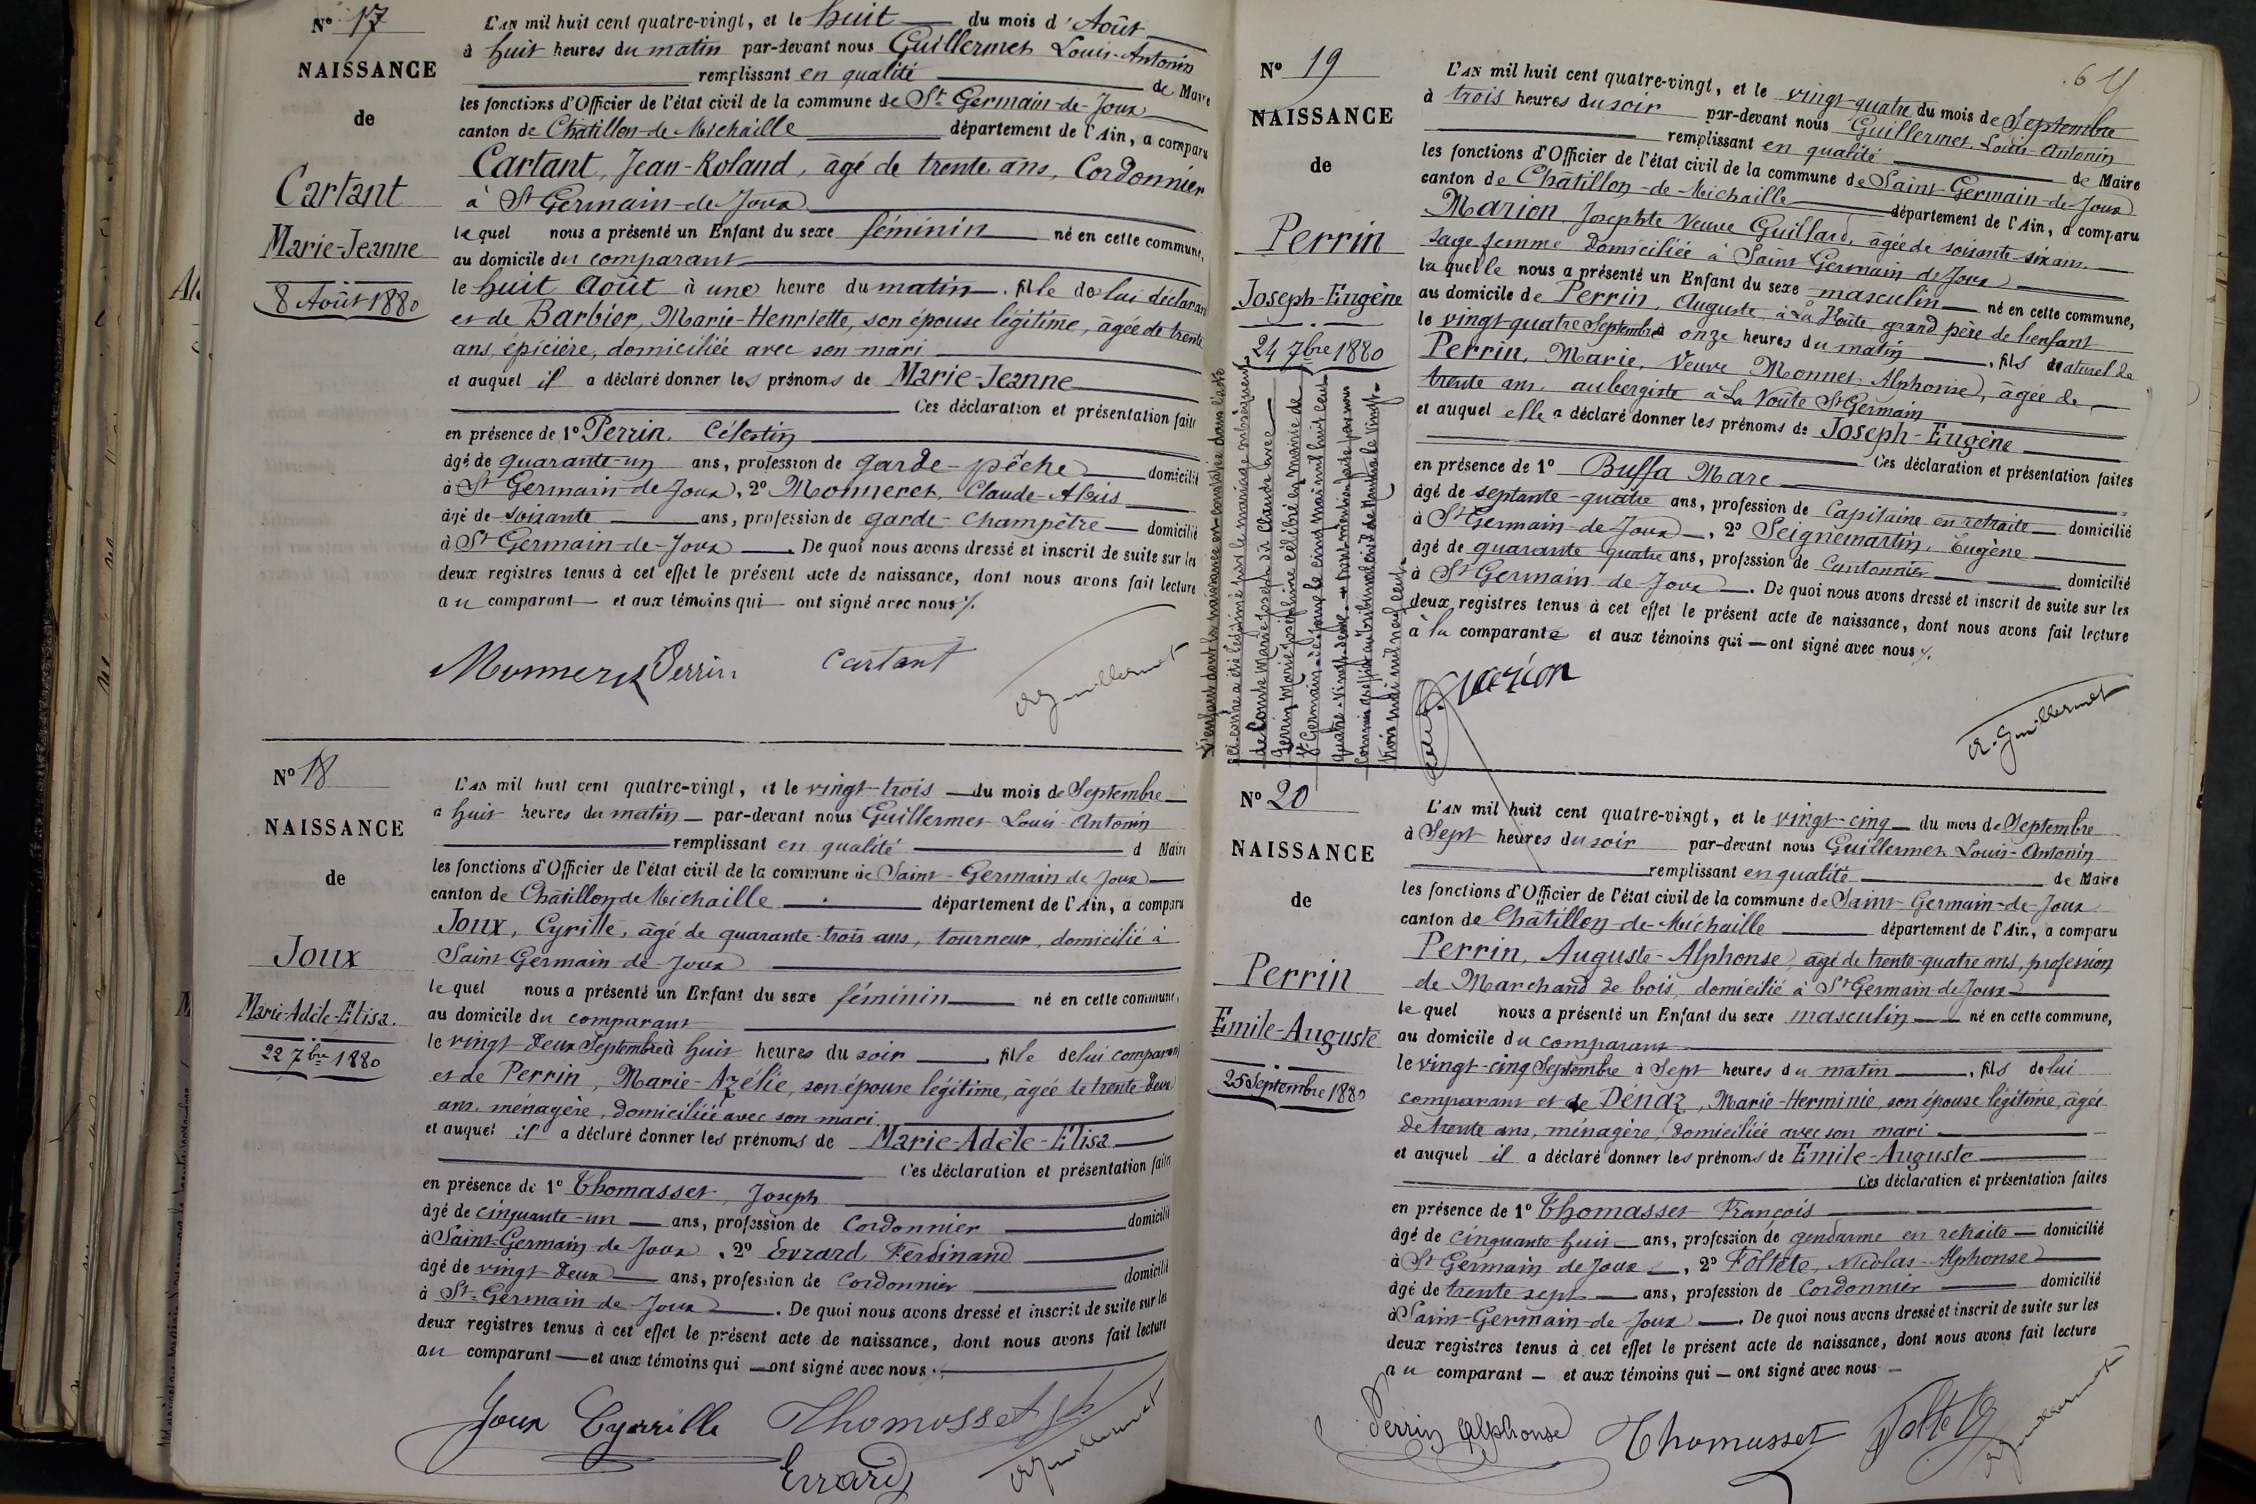 N° 17
NAISSANCE
de
Cartant
Marie-Jeanne
8 Août 1880
L'AN mil huit cent quatre-vingt, et le huit du mois d'Août
à huit heures du matin par-devant nous Guillermet Louis-Antonin
remplissant en qualité de Maire
les fonctions d'Officier de l'état civil de la commune de St Germain-de-Joux
canton de Châtillon-de-Michaille département de l'Ain, a comparu
Cartant, Jean-Roland, âgé de trente ans, Cordonnier
à St Germain-de-Joux
lequel nous a présenté un Enfant du sexe féminin né en cette commune,
au domicile du comparant
le huit Août à une heure du matin, fille de lui déclarant
et de Barbier, Marie-Henriette, son épouse légitime, âgée de trente
ans, épicière, domiciliée avec son mari
et auquel il a déclaré donner les prénoms de Marie-Jeanne
Ces déclaration et présentation faites
en présence de 1° Perrin, Célestin
âgé de quarante-un ans, profession de garde-pêche domicilié
à St Germain-de-Joux, 2° Monneret, Claude-Alexis
âgé de soixante ans, profession de garde-champêtre domicilié
à St Germain-de-Joux. De quoi nous avons dressé et inscrit de suite sur les
deux registres tenus à cet effet le présent acte de naissance, dont nous avons fait lecture
au comparant et aux témoins qui ont signé avec nous
Monneret Perrin Cartant
A Guillermet
N° 18
NAISSANCE
de
Joux
Marie-Adèle-Elisa.
22 7bre 1880
L'AN mil huit cent quatre-vingt, et le vingt-trois du mois de Septembre
à huit heures du matin par-devant nous Guillermet Louis-Antonin
remplissant en qualité d Maire
les fonctions d'Officier de l'état civil de la commune de Saint-Germain de Joux
canton de Châtillon de Michaille département de l'Ain, a comparu
Joux, Cyrille, âgé de quarante-trois ans, tourneur, domicilié à
Saint-Germain-de-Joux
lequel nous a présenté un Enfant du sexe féminin né en cette commune,
au domicile du comparant
le vingt-deux Septembre à huit heures du soir, fille de lui comparant
et de Perrin, Marie-Azélie, son épouse légitime, âgée de trente-deux
ans, ménagère, domiciliée avec son mari.
et auquel il a déclaré donner les prénoms de Marie-Adèle-Elisa
Ces déclaration et présentation faites
en présence de 1° Thomasset, Joseph
âgé de cinquante-un ans, profession de Cordonnier domicilié
à Saint-Germain-de-Joux, 2° Evrard Ferdinand
âgé de vingt-deux ans, profession de Cordonnier domicilié
à St-Germain-de-Joux. De quoi nous avons dressé et inscrit de suite sur les
deux registres tenus à cet effet le présent acte de naissance, dont nous avons fait lecture
au comparant et aux témoins qui ont signé avec nous.
Joux Cyrille Thomasset Jph
Evrard A Guillermet
6
N° 19
NAISSANCE
de
Perrin
Joseph-Eugène
24 7bre 1880
L'enfant dont la naissance est constatée dans l'acte
ci-contre a été légitimé par le mariage subséquent
de Comte Marie Joseph dit Claude avec
Perrin Marie Joséphine célébré en mairie de
St Germain-de-Joux le cinq mai mil huit cent
quatre-vingt
L'AN mil huit cent quatre-vingt, et le vingt-quatre du mois de Septembre
à trois heures du soir par-devant nous Guillermet, Louis-Antonin
remplissant en qualité de Maire
les fonctions d'Officier de l'état civil de la commune de Saint-Germain-de-Joux
canton de Châtillon-de-Michaille département de l'Ain, a comparu
Marion, Josephte Veuve Guillard, âgée de soixante-six ans,
sage femme domiciliée à Saint Germain de Joux
laquelle nous a présenté un Enfant du sexe masculin né en cette commune,
au domicile de Perrin, Auguste, à La Voûte, grand père de l'enfant
le vingt-quatre Septembre à onze heures du matin, fils naturel de
Perrin, Marie, Veuve Monnet, Alphonse, âgée de
trente ans, aubergiste à La Voûte St Germain
et auquel elle a déclaré donner les prénoms de Joseph-Eugène
Ces déclaration et présentation faites
en présence de 1° Buffa Marc
âgé de septante-quatre ans, profession de Capitaine en retraite domicilié
à St Germain-de-Joux, 2° Seignemartin, Eugène
âgé de quarante-quatre ans, profession de Cantonnier domicilié
à St Germain-de-Joux. De quoi nous avons dressé et inscrit de suite sur les
deux registres tenus à cet effet le présent acte de naissance, dont nous avons fait lecture
à la comparante et aux témoins qui ont signé avec nous
Marion
A. Guillermet
N° 20
NAISSANCE
de
Perrin
Emile-Auguste
25 Septembre 1880
L'AN mil huit cent quatre-vingt, et le vingt-cinq du mois de Septembre
à Sept heures du soir par-devant nous Guillermet Louis-Antonin
remplissant en qualité de Maire
les fonctions d'Officier de l'état civil de la commune de Saint-Germain-de-Joux
canton de Châtillon-de-Michaille département de l'Ain, a comparu
Perrin, Auguste-Alphonse, âgé de trente-quatre ans, profession
de Marchand de bois, domicilié à St Germain-de-Joux
lequel nous a présenté un Enfant du sexe masculin né en cette commune,
au domicile du comparant
le vingt-cinq Septembre à Sept heures du matin, fils de lui
comparant et de Dénaz, Marie-Herminie, son épouse légitime, âgée
de trente ans, ménagère, domiciliée avec son mari
et auquel il a déclaré donner les prénoms de Emile-Auguste
Ces déclaration et présentation faites
en présence de 1° Thomasset François
âgé de cinquante-huit ans, profession de gendarme en retraite domicilié
à St Germain de Joux, 2° Foltête, Nicolas-Alphonse
âgé de trente sept ans, profession de Cordonnier domicilié
à Saint-Germain-de-Joux. De quoi nous avons dressé et inscrit de suite sur les
deux registres tenus à cet effet le présent acte de naissance, dont nous avons fait lecture
au comparant et aux témoins qui ont signé avec nous
Perrin Alphonse Thomasset Foltete A Guillermet